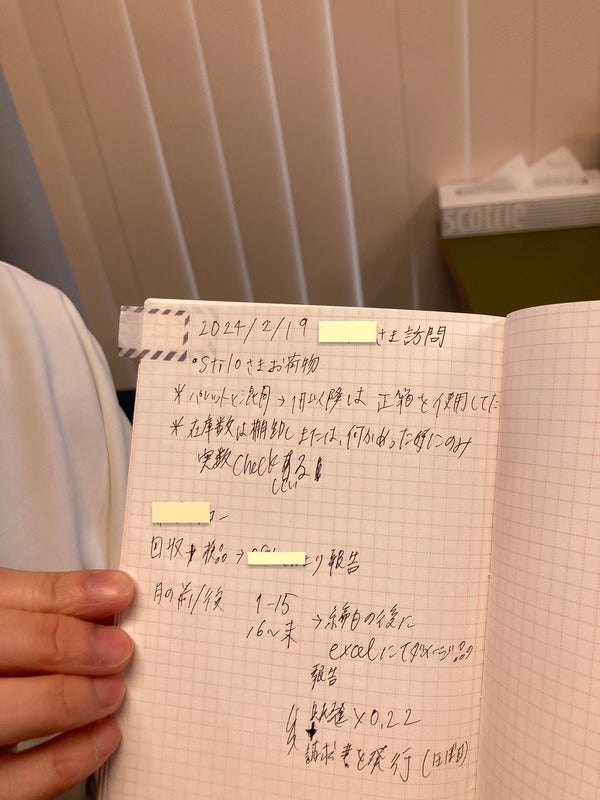 scottie
2024/2/19 さま訪問
・Stiloさまお荷物
※パレットと混同→1月以降は 正箱を使用してた
※在庫数は棚卸しまたは、何かあった時にのみ
実数Checkする
ー
回収+検品→ より報告
月の前/後 1-15 →締日の後に
16〜末 excelにてダメージ品の
報告
×0.22
請求書を発行